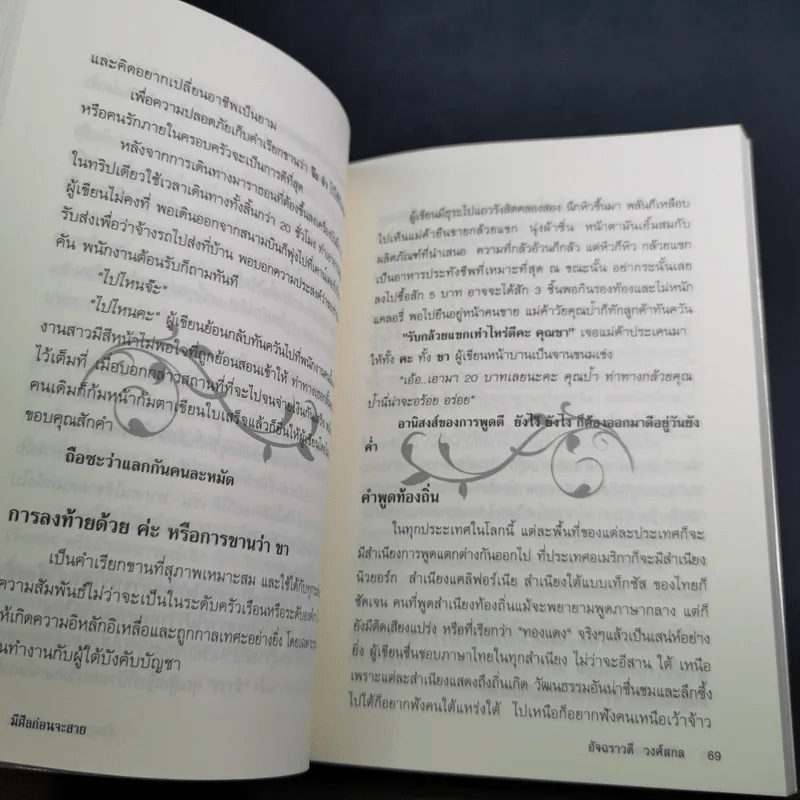 และคิดอยากเปลี่ยนอาชีพเป็นยาม
เพื่อความปลอดภัยเก็บคำเรียกขานว่า จ๊ะ จ๋า
หรือคนรักภายในครอบครัวจะเป็นการดีที่สุด
หลังจากการเดินทางมาราธอนที่ต้องขึ้นลงเครื่องบิน
ในทริปเดียวใช้เวลาเดินทางทั้งสิ้นกว่า 20 ชั่วโมง
ผู้เขียนไม่คงที่ พอเดินออกจากสนามบินก็พุ่งไปที่
รับส่งเพื่อว่าจ้างรถไปส่งที่บ้าน พอบอกความประสงค์
คัน พนักงานต้อนรับก็ถามทันที
"ไปไหนจ๊ะ"
"ไปไหนคะ" ผู้เขียนย้อนกลับทันควันไปที่
งานสาวมีสีหน้าไม่พอใจที่ถูกย้อนสอนเข้าให้
ไว้เต็มที่ เมื่อบอกกล่าวสถานที่ที่จะไปจนจ่ายเงิน
คนเดิมก็ก้มหน้าก้มตาเขียนใบเสร็จแล้วก็ยื่นให้
ขอบคุณสักคำ
ถือซะว่าแลกกันคนละหมัด
การลงท้ายด้วย ค่ะ หรือการขานว่า ขา
เป็นคำเรียกขานที่สุภาพเหมาะสม และใช้ได้กับ
ความสัมพันธ์ไม่ว่าจะเป็นในระดับครัวเรือนหรือระดับ
ให้เกิดความอิหลักอิเหลื่อและถูกกาลเทศะอย่างยิ่ง
ทำงานกับผู้ใต้บังคับบัญชา
มีศีลก่อนจะสาย
ผู้เขียนมีธุระไปแถวรังสิตคลองสอง นึกหิวขึ้นมา พลันก็เหลือบ
ไปเห็นแม่ค้ายืนขายกล้วยแขก นุ่งผ้าซิ่น หน้าตามันเยิ้มสมกับ
ผลิตภัณฑ์ที่นำเสนอ ความที่กลัวอ้วนก็กลัว แต่หิวก็หิว กล้วยแขก
เป็นอาหารประทังชีพที่เหมาะที่สุด ณ ขณะนั้น อย่ากระนั้นเลย
ลงไปซื้อสัก 5 บาท อาจจะได้สัก 3 ชิ้นพอกินรองท้องและไม่หนัก
แคลอรี่ พอไปยืนอยู่หน้าคนขาย แม่ค้าวัยคุณป้าก็ทักลูกค้าทันควัน
"รับกล้วยแขกเท่าไหร่ดีคะ คุณขา" เจอแม่ค้าประเคนมา
ให้ทั้ง คะ ทั้ง ขา ผู้เขียนหน้าบานเป็นจานขนมเข่ง
"เอ้อ..เอามา 20 บาทเลยนะคะ คุณป้า ท่าทางกล้วยคุณ
ป้านี่น่าจะอร้อย อร่อย"
อานิสงส์ของการพูดดี ยังไง๊ ยังไง ก็ต้องออกมาดีอยู่วันยัง
ค่ำ
คำพูดท้องถิ่น
ในทุกประเทศในโลกนี้ แต่ละพื้นที่ของแต่ละประเทศก็จะ
มีสำเนียงการพูดแตกต่างกันออกไป ที่ประเทศอเมริกาก็จะมีสำเนียง
นิวยอร์ก สำเนียงแคลิฟอร์เนีย สำเนียงใต้แบบเท็กซัส ของไทยก็
ชัดเจน คนที่พูดสำเนียงท้องถิ่นแม้จะพยายามพูดภาษากลาง แต่ก็
ยังมีติดเสียงแปร่ง หรือที่เรียกว่า "ทองแดง" จริงๆแล้วเป็นเสน่ห์อย่าง
ยิ่ง ผู้เขียนชื่นชอบภาษาไทยในทุกสำเนียง ไม่ว่าจะอีสาน ใต้ เหนือ
เพราะแต่ละสำเนียงแสดงถึงถิ่นเกิด วัฒนธรรมอันน่าชื่นชมและลึกซึ้ง
ไปใต้ก็อยากฟังคนใต้แหร่งใต้ ไปเหนือก็อยากฟังคนเหนือเว้าจ้าว
อัจฉราวดี วงศ์สกล 69